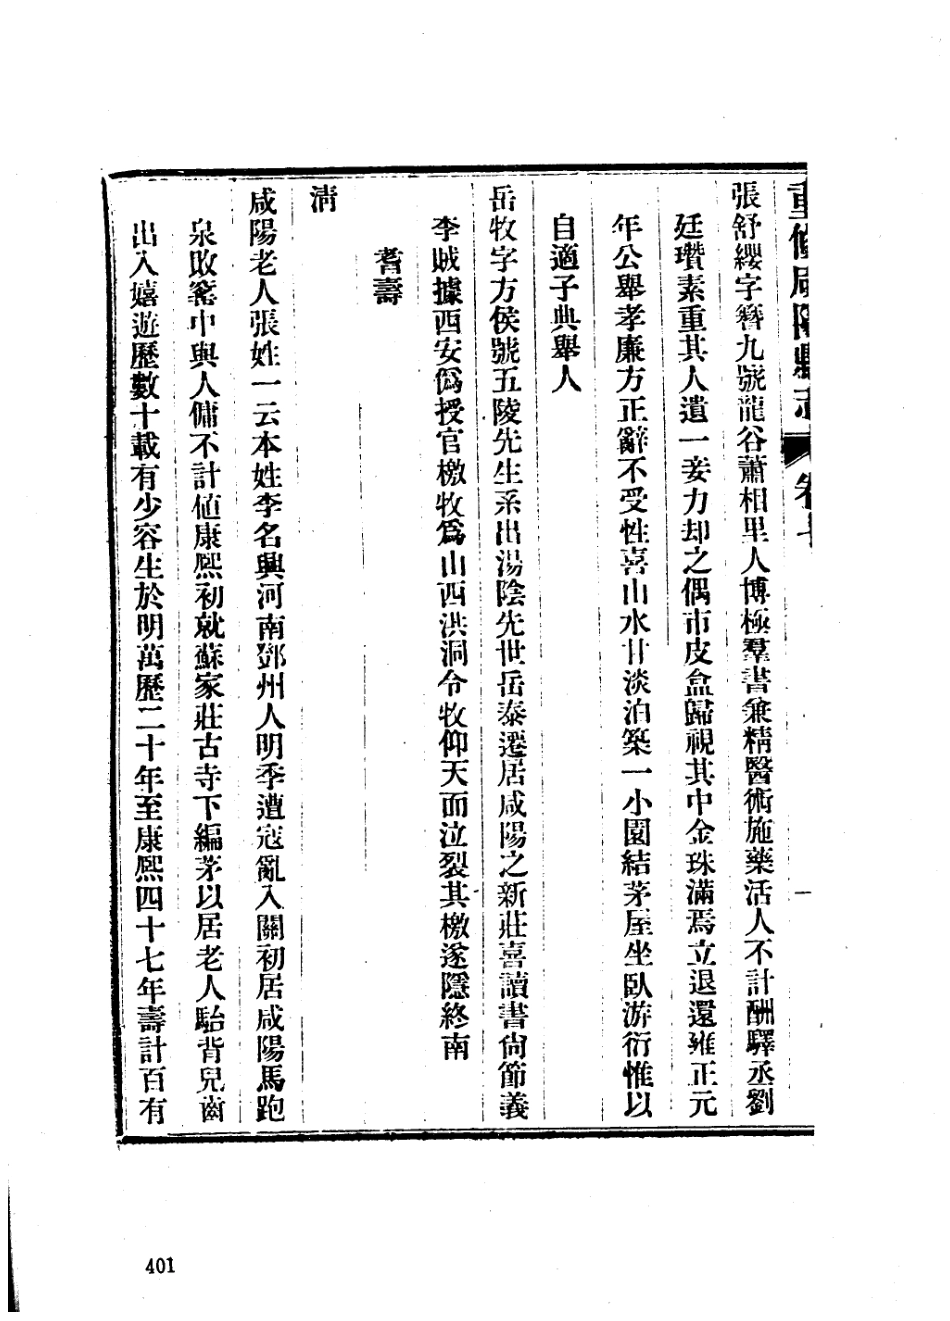 重修咸陽縣志 卷七
張舒纓字簪九號龍谷蕭相里人博極羣書兼精醫術施藥活人不計酬驛丞劉
廷瓚素重其人遺一妾力却之偶市皮盒歸視其中金珠滿焉立退還雍正元
年公舉孝廉方正辭不受性喜山水甘淡泊築一小園結茅屋坐臥游衍惟以
自適子典舉人
岳牧字方侯號五陵先生系出湯陰先世岳泰遷居咸陽之新莊喜讀書尙節義
李賊據西安僞授官檄牧爲山西洪洞令牧仰天而泣裂其檄遂隱終南
耆壽
淸
咸陽老人張姓一云本姓李名興河南鄧州人明季遭寇亂入關初居咸陽馬跑
泉敗窰中與人傭不計値康熙初就蘇家莊古寺下編茅以居老人駘背兒齒
出入嬉遊歷數十載有少容生於明萬歷二十年至康熙四十七年壽計百有
401